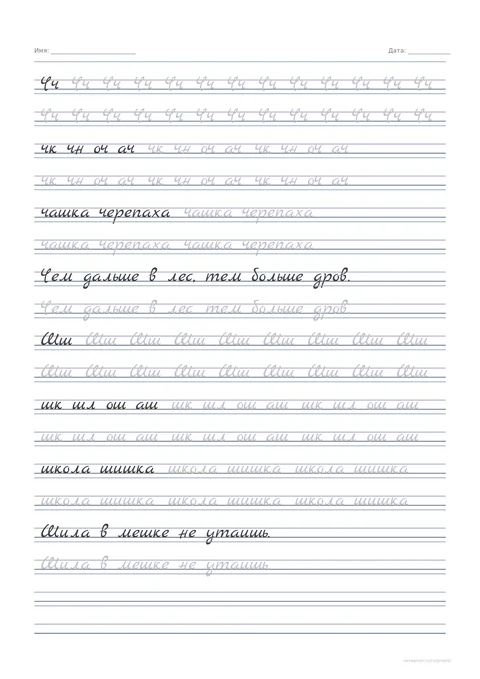 Имя: Дата:
Чч Чч Чч Чч Чч Чч Чч Чч Чч Чч Чч Чч Чч
Чч Чч Чч Чч Чч Чч Чч Чч Чч Чч Чч Чч Чч
чк чн оч ач чк чн оч ач чк чн оч ач
чк чн оч ач чк чн оч ач чк чн оч ач
чашка черепаха чашка черепаха
чашка черепаха чашка черепаха
Чем дальше в лес, тем больше дров.
Чем дальше в лес тем больше дров
Шш Шш Шш Шш Шш Шш Шш Шш Шш
Шш Шш Шш Шш Шш Шш Шш Шш Шш
шк шл ош аш шк шл ош аш шк шл ош аш
шк шл ош аш шк шл ош аш шк шл ош аш
школа шишка школа шишка школа шишка
школа шишка школа шишка школа шишка
Шила в мешке не утаишь.
Шила в мешке не утаишь